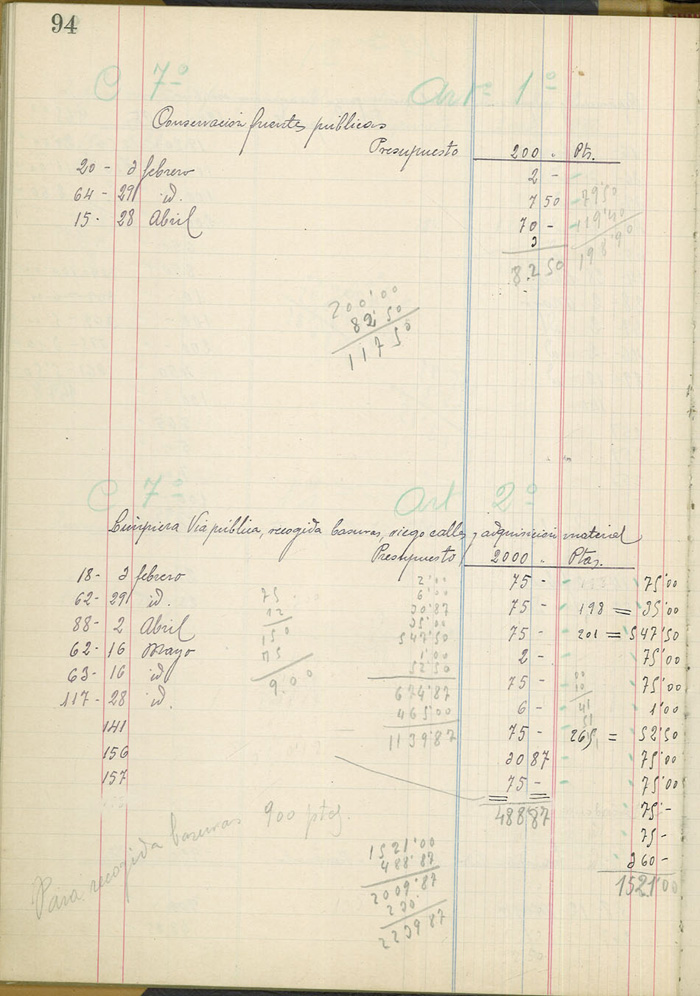 94
C 7º Artº 1º
Conservación fuentes públicas
Presupuesto 200 . Pts.
20 - 3 febrero 2 -
64 - 29 id. 7 50 79'50
15 - 28 Abril 70 - 119'40
3 198'90
82 50
200'00
82 50
117 50
C 7º Art 2º
Limpiera Via pública, recogida basuras, riego calles y adquisición material
Presupuesto 2000 . Ptas.
18 - 3 febrero 2'00 75 - 75'00
62 - 29 id. 75 6'00 75 - 198 = 35'00
88 - 2 Abril 12 30'87 75 - 201 = 547'50
62 - 16 Mayo 150 35'00 2 - 75'00
63 - 16 id 75 547'50 75 - 75'00
117 - 28 id. 900 1'00 6 - 1'00
141 52'50 75 - 265 = 52'50
156 674'87 30 87 75'00
157 465'00 75 - 75'00
1139'87 488'87 75 -
75 -
360 -
1521'00
Para recogida basuras 900 ptas.
1521'00
488'87
2009'87
230'
2239'87